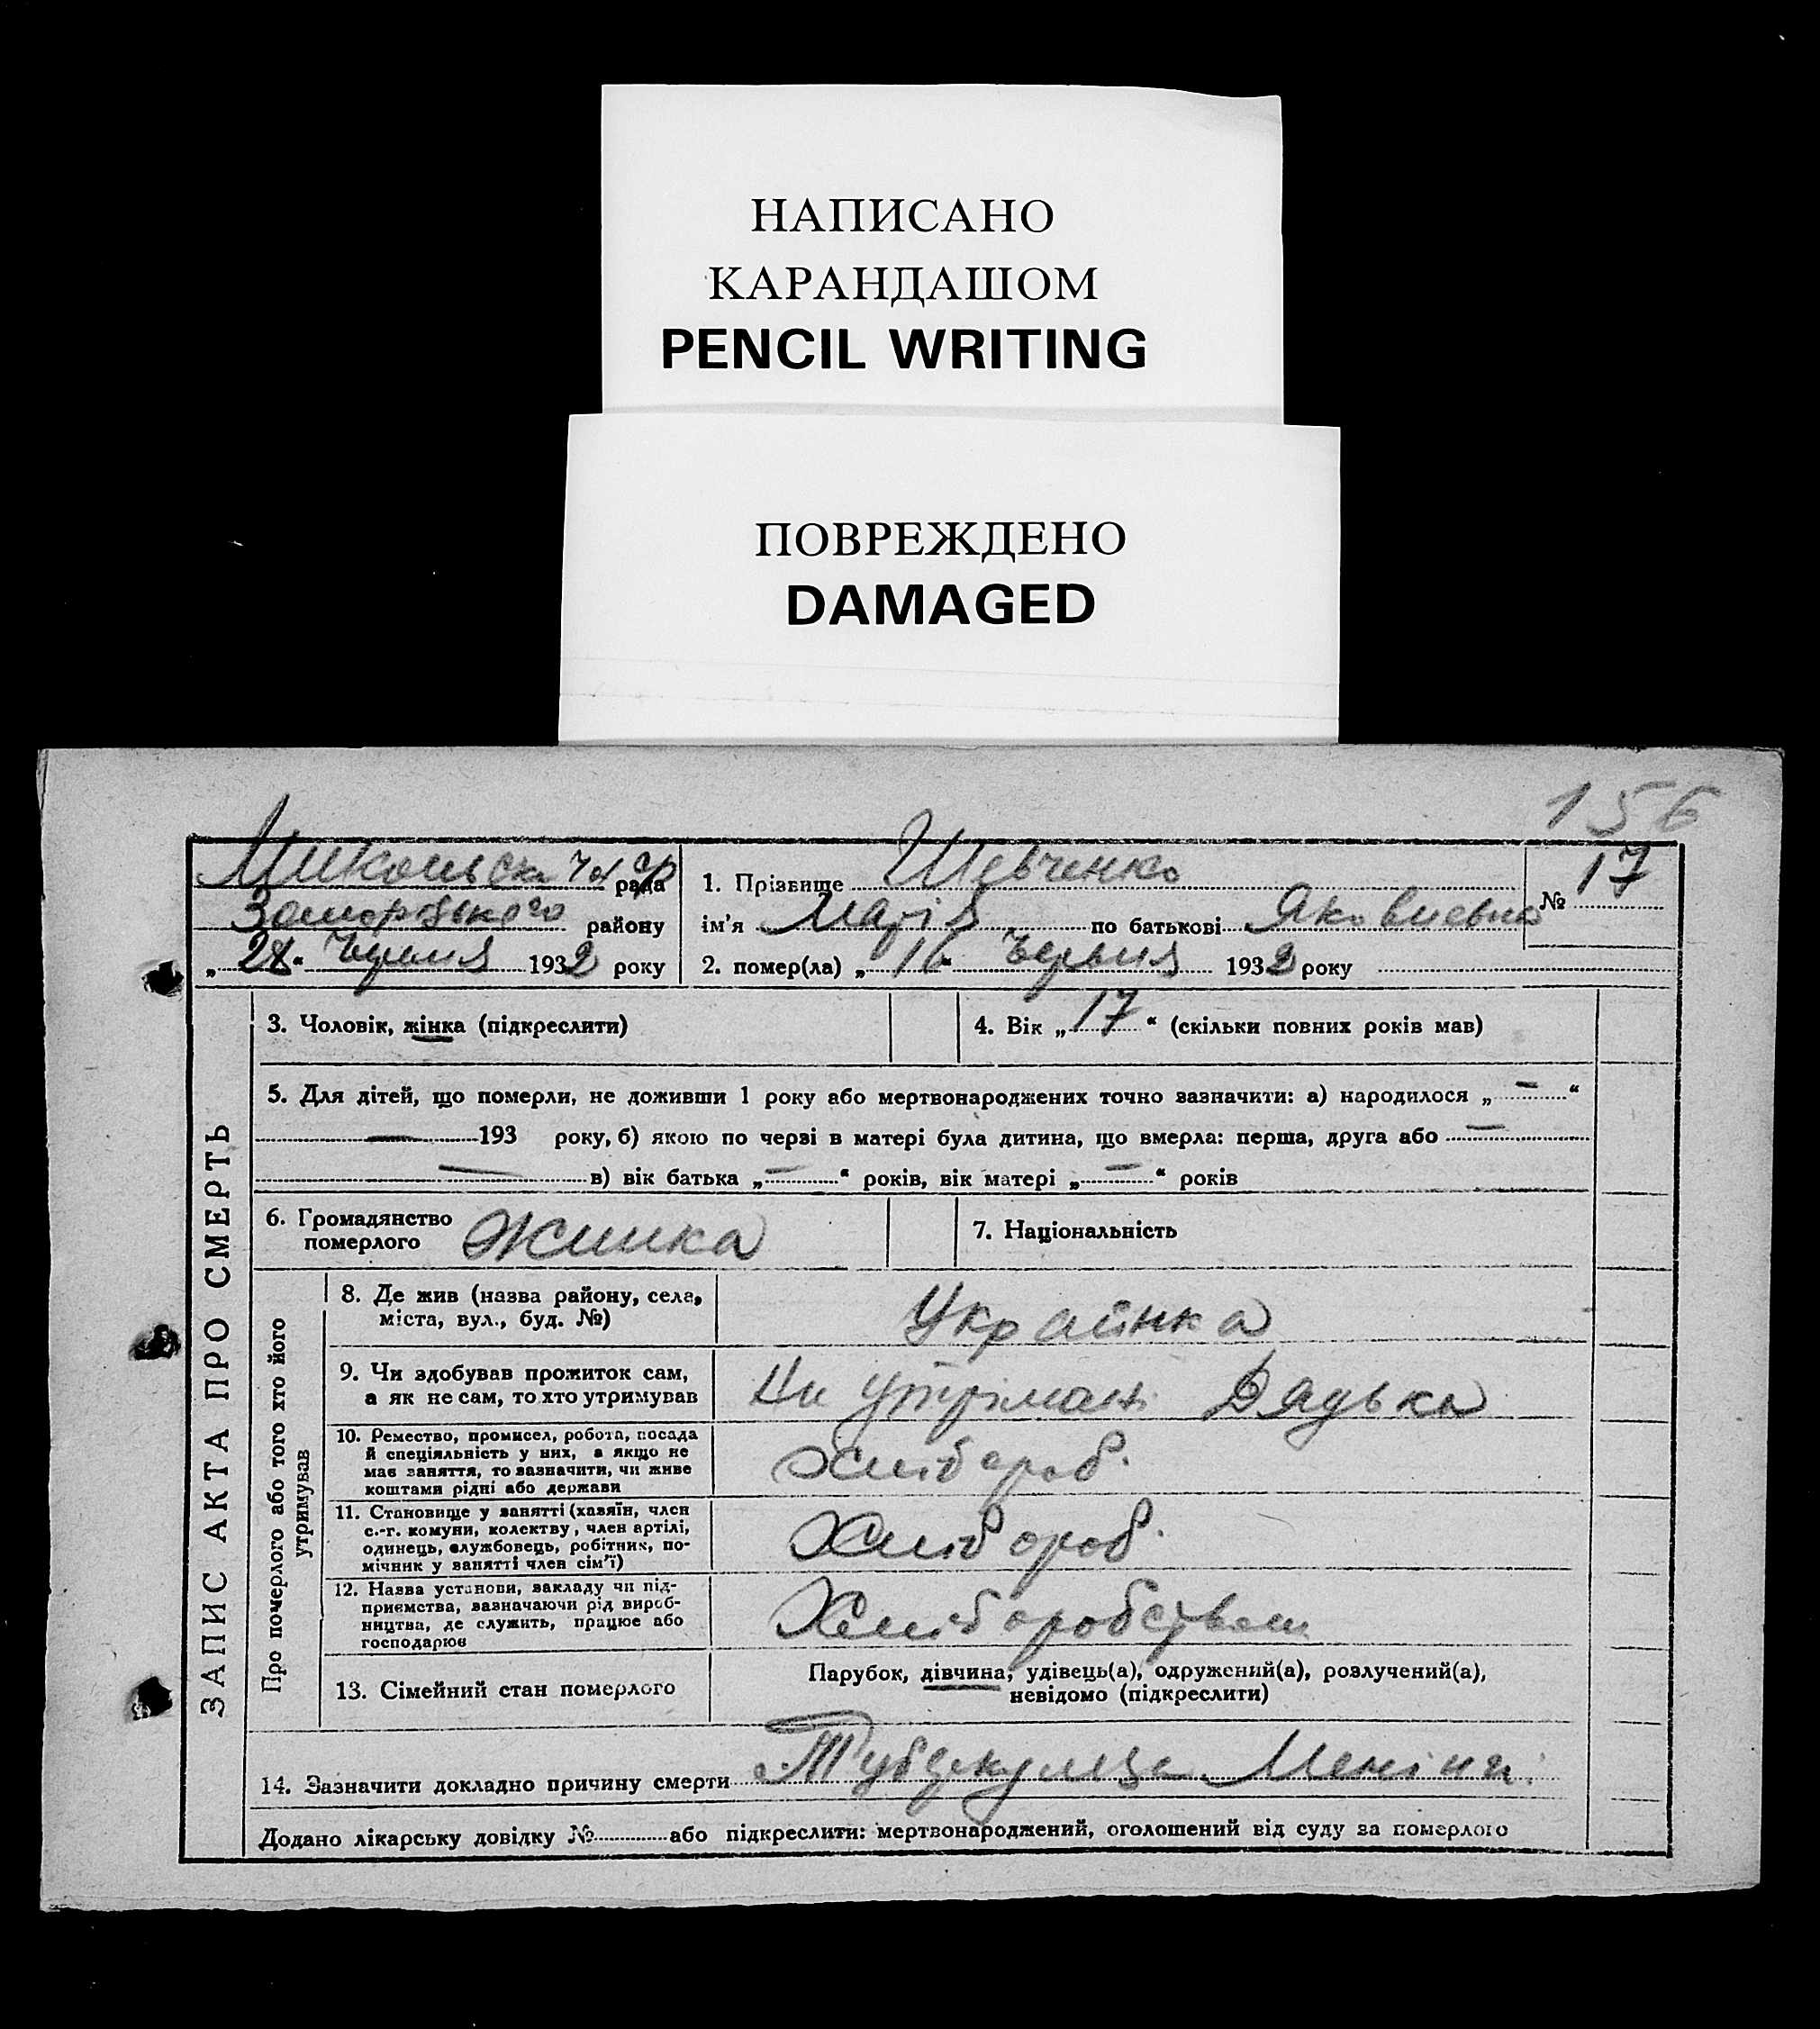 НАПИСАНО
КАРАНДАШОМ
PENCIL WRITING
ПОВРЕЖДЕНО
DAMAGED
156
рада
району
„ “ Червня 1932 року
1. Прізвище Шевченко
ім'я Марія по батькові Яковлевна
2. помер(ла) „16“ Червня 1932 року
№ 17
ЗАПИС АКТА ПРО СМЕРТЬ
3. Чоловік, жінка (підкреслити)
4. Вік „17“ (скільки повних років мав)
5. Для дітей, що померли, не доживши 1 року або мертвонароджених точно зазначити: а) народилося „ — “
— 193 року, б) якою по черзі в матері була дитина, що вмерла: перша, друга або —
— в) вік батька „ — “ років, вік матері „ — “ років
6. Громадянство
померлого Жинка
7. Національність
Про померлого або того хто його
утримував
8. Де жив (назва району, села,
міста, вул., буд. №)
Украинка
9. Чи здобував прожиток сам,
а як не сам, то хто утримував
На утриман. Дядька
10. Ремество, промисел, робота, посада
й спеціяльність у них, а якщо не
має заняття, то зазначити, чи живе
коштами рідні або держави
Хлібороб.
11. Становище у занятті (хазяїн, член
с.-г. комуни, колектву, член артілі,
одинець, службовець, робітник, по-
мічник у занятті член сім'ї)
Хлібороб.
12. Назва установи, закладу чи під-
приємства, зазначаючи рід вироб-
ництва, де служить, працює або
господарює
Хліборобством
13. Сімейний стан померлого
Парубок, дівчина, удівець(а), одружений(а), розлучений(а),
невідомо (підкреслити)
14. Зазначити докладно причину смерти Менінгі.
Додано лікарську довідку № або підкреслити: мертвонароджений, оголошений від суду за померлого